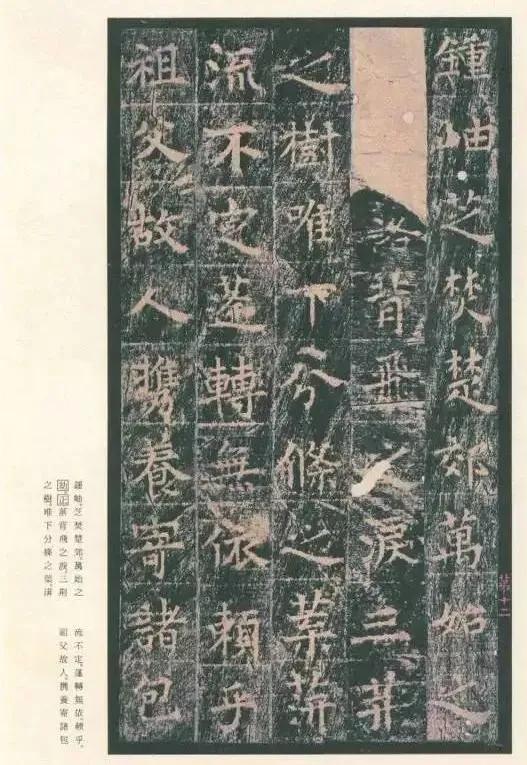 鍾岫芝焚楚郊萬始之
落背飛之淚三荊
之樹唯下分條之葉漭
流不定蓬轉無依賴乎
祖父故人攜養寄諸包
鍾岫,芝焚楚郊,萬始之
落背飛之淚,三荊
之樹,唯下分條之葉,漭
流不定,蓬轉無依,賴乎
祖父故人,攜養寄諸包